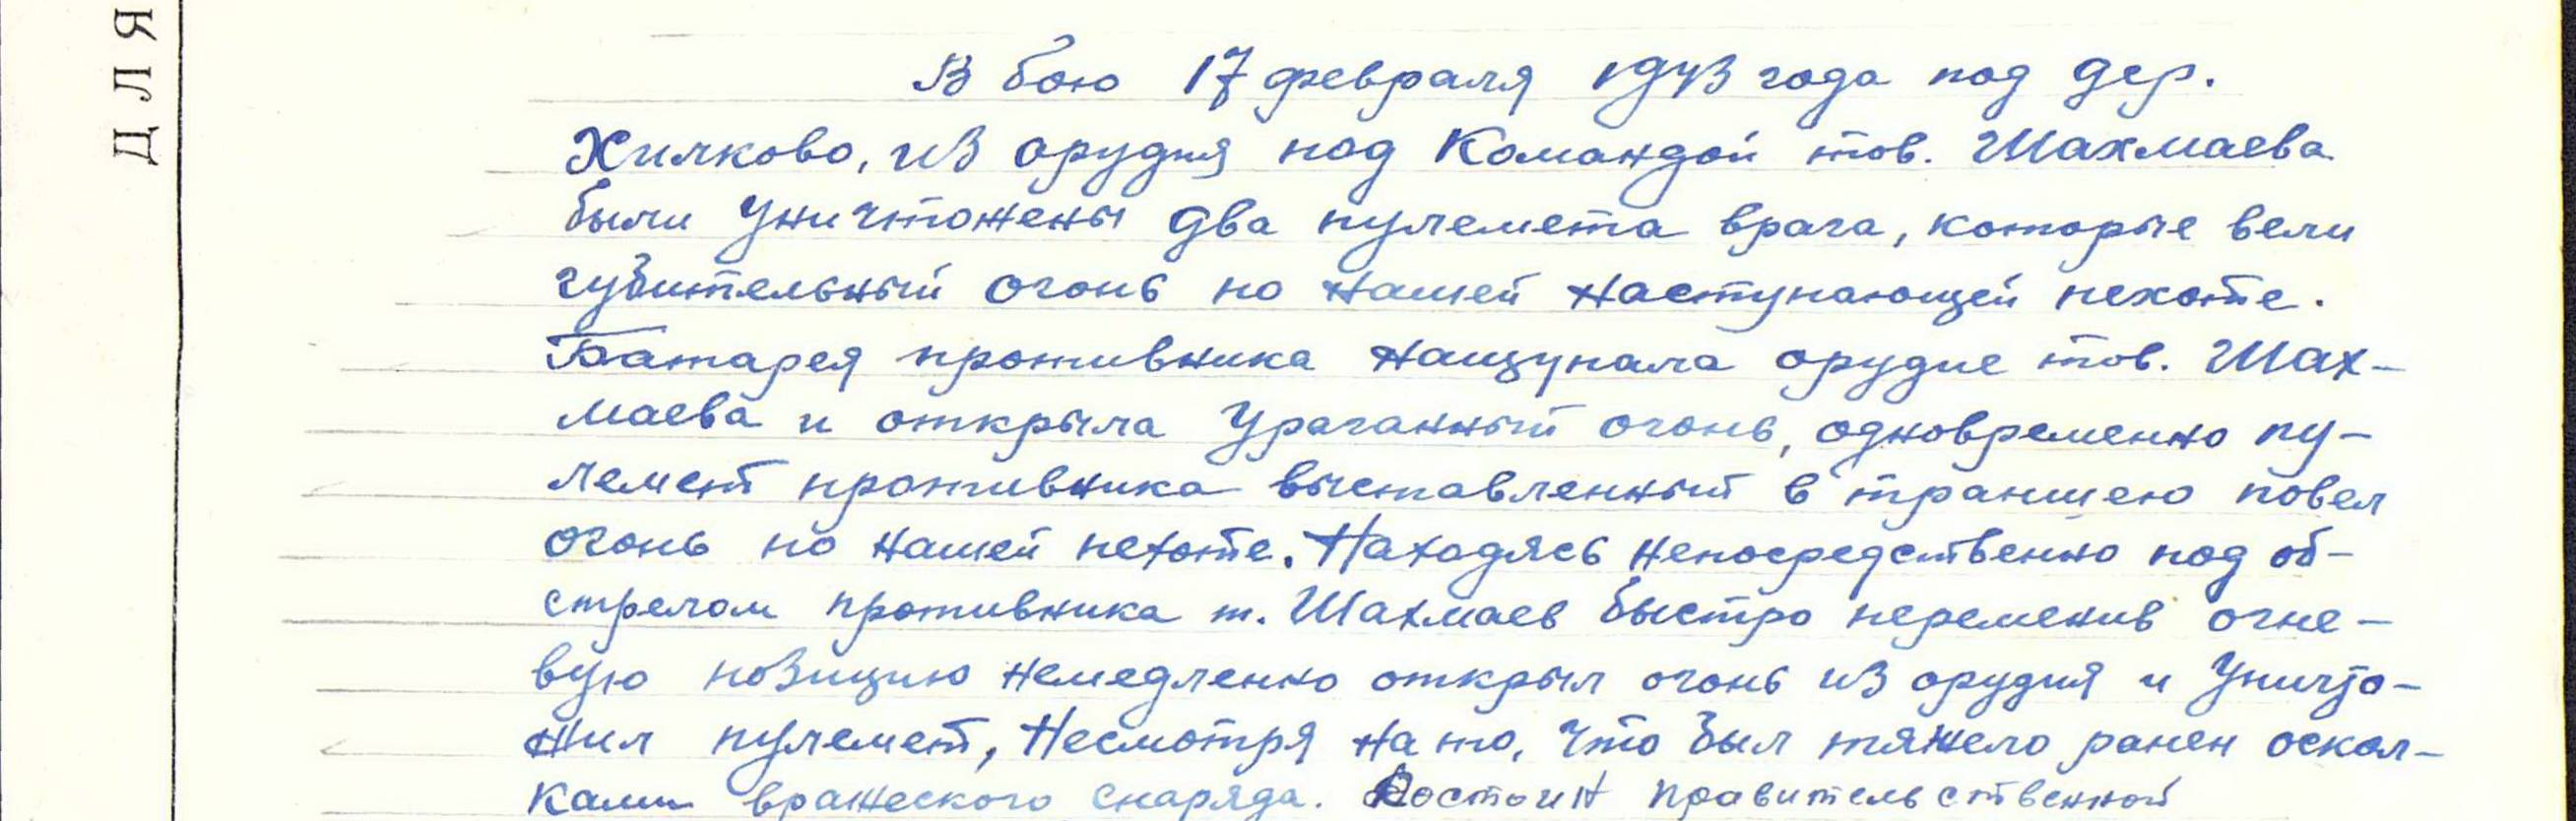 ДЛЯ
В бою 17 февраля 1943 года под дер.
Хилково, из орудия под Командой тов. Шахмаева
были уничтожены два пулемета врага, которые вели
губительный огонь по нашей наступающей пехоте.
Батарея противника нащупала орудие тов. Шах-
маева и открыла ураганный огонь, одновременно пу-
лемет противника выставленный в траншею повел
огонь по нашей пехоте. Находясь непосредственно под об-
стрелом противника т. Шахмаев быстро переменив огне-
вую позицию немедленно открыл огонь из орудия и уничто-
жил пулемет, Несмотря на то, что был тяжело ранен оскол-
ками вражеского снаряда. Достоин правительственной